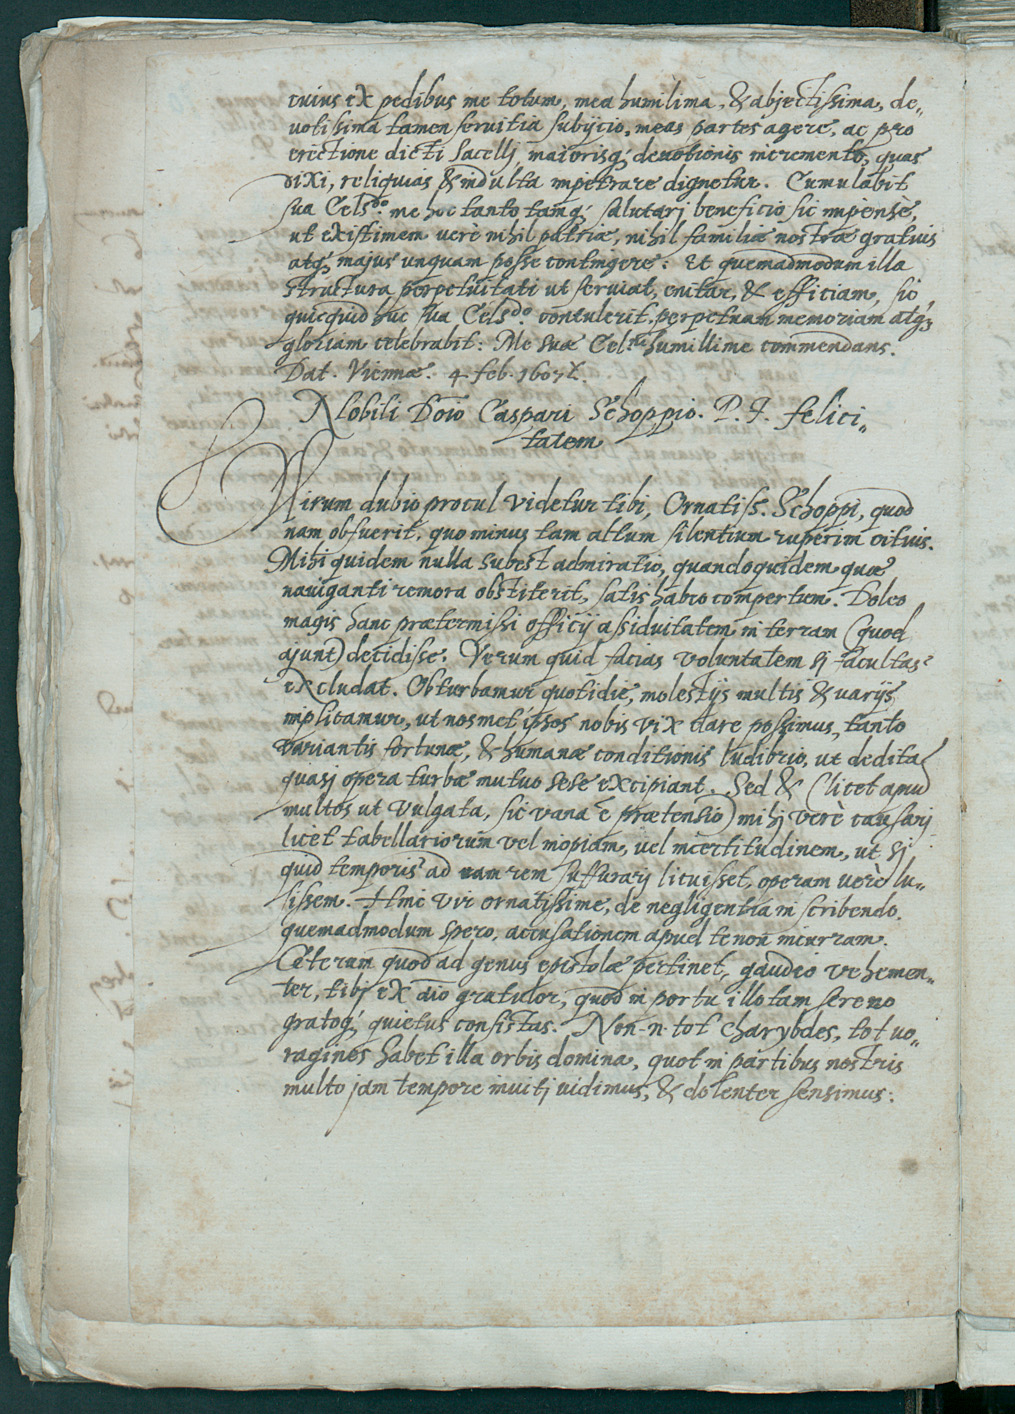 cuius ex pedibus me totum, mea humilima, & abjectissima, de„
votissima tamen seruitia subijcio, meas partes agere, ac pro
erectione dicti sacellj, maiorisq; deuotionis incremento, quas
dixi, reliquias & indulta impetrare dignetur. Cumulabit
sua Cels.do me hoc tanto tamq; salutarj beneficio sic impensè,
ut existimem verè nihil patriæ, nihil familiæ nostræ gratius
atq; majus unquam posse contingere: Et quemadmodum illa
structura perpetuitati ut seruiat, enitar, & efficiam, sic
quicquid huc sua Cels.do contulerit, perpetuam memoriam atq;
gloriam celebrabit: Me suæ Cel.ni humillime commendans.
Dat. Viennæ. 4 feb. 1607.
Nobili Dõio Caspari Schoppio. P. I. felici„
tatem
Mirum dubio procul videtur tibi, Ornatiss. Schoppi, quod
nam obfuerit, quo minus tam altum silentium ruperim citius.
Mihi quidem nulla subest admiratio, quandoquidem quæ
nauiganti remora obstiterit, satis habeo compertum. Doleo
magis hanc prætermissi officij assiduitatem in terram (quod
ajunt) decidisse. Verum quid facias voluntatem sj facultas
excludat. Obturbamur quotidie, molestijs multis & varijs
implicamur, ut nosmet ipsos nobis vix dare possimus, tanto
variantis fortunæ, & humanæ conditionis ludibrio, ut dedita
quasj opera turbæ mutuo sese excipiant. Sed & (licet apud
multos ut vulgata, sic vana ẽ prætensio) mihj verè causarj
licet tabellariorum vel inopiam, vel incertitudinem, ut sj
quid temporis ad eam rem suffurarj licuisset, operam verè lu„
sissem. Hinc vir ornatissime, de negligentia in scribendo,
quemadmodum spero, accusationem apud te non incurram.
Cæterum quod ad genus epistolæ pertinet, gaudeo vehemen„
ter, tibj ex aĩo gratulor, quod in portu illo tam sereno
gratoq; quietus consistas. Non n. tot charybdes, tot uo„
ragines habet illa orbis domina, quot in partibus nostris
multo jam tempore inuitj uidimus, & dolenter sensimus: